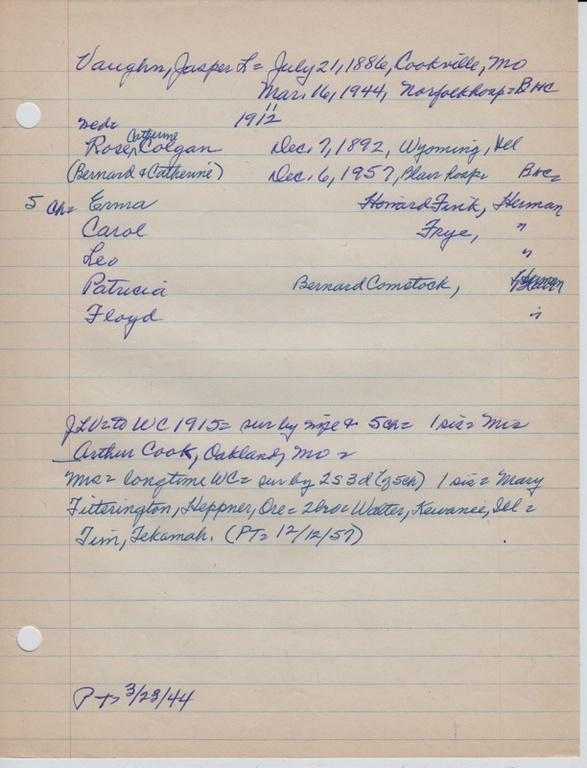 Vaughn, Jasper L = July 21, 1886, Cookville, Mo
Mar. 16, 1944, Norfolk hosp = BHC
med = 1912
Rose Catherine Colgan Dec. 7, 1892, Wyoming, Ill
(Bernard & Catherine) Dec. 6, 1957, Blair hosp = BHC =
5 ch = Erma Howard Fink, Herman
Carol Frye, "
Leo "
Patricia Bernard Comstock,
Floyd "
JLV = to WC 1915 = sur by wife & 5 ch = 1 sis = Mrs
Arthur Cook, Oakland, Mo =
Mrs = longtime WC = sur by 2 s 3 d (of 5 ch) 1 sis = Mary
Titterington, Heppner, Ore = 2 bro = Walter, Kewanee, Ill =
Tim, Tekamah. (PT = 12/12/57)
PT = 3/23/44